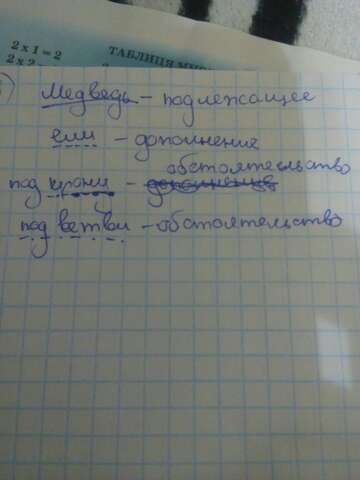 2 x 1 = 2
2 x 2 =
ТАБЛИЦЯ МНО
Медведь – подлежащее
ели – дополнение
обстоятельство
под кроны – дополнение
под ветви – обстоятельство